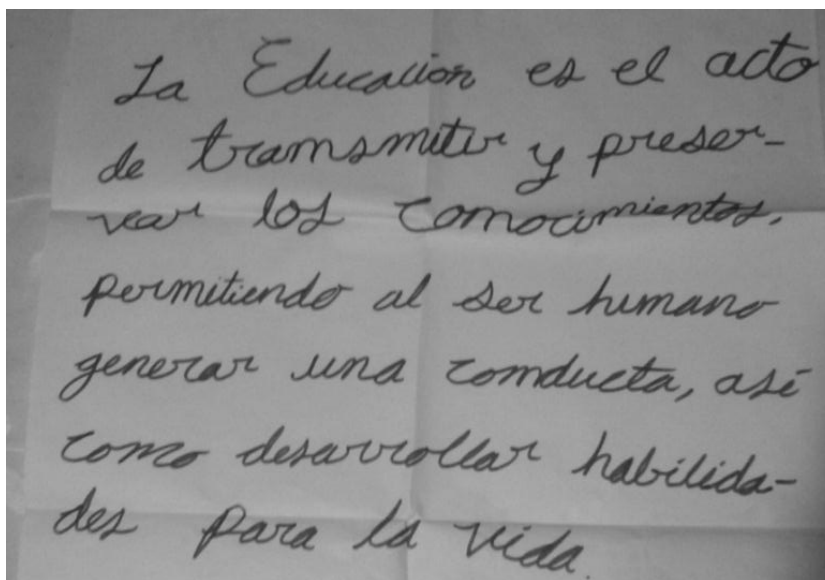 La Educación es el acto
de transmitir y preser-
var los conocimientos,
permitiendo al ser humano
generar una conducta, así
como desarrollar habilida-
des para la vida.